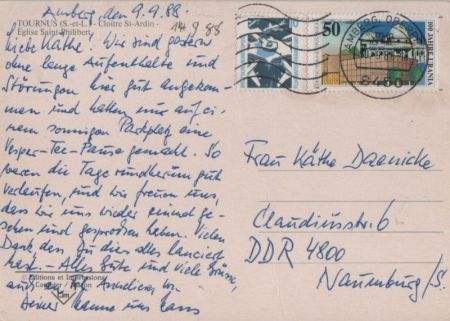 Amberg den 9.9.88.
14.9.88
TOURNUS (S.-et-L.) - Cloître St-Ardin -
Eglise Saint-Philibert
Liebe Käthe! Wir sind gestern
ohne lange Aufenthalte und
Störungen hier gut angekom-
men und hatten nur auf ei-
nem sonnigen Parkplatz eine
Vesper-Tee-Pause gemacht. So
waren die Tage rundherum gut
verlaufen, und wir freuen uns,
dass wir uns wieder einmal ge-
sehen und gesprochen haben. Vielen
Dank dass Du dies alles lanciert
hast. - Alles Gute und viele Grüsse,
auch an
Deine Hanne und Hans
© Editions et Impressions
Combier Mâcon
cim
50
100 JAHRE URANIA
AMBERG, OBERPF
8450
Frau Käthe Daenicke
Claudiusstr. 6
DDR 4800
Naumburg/S.